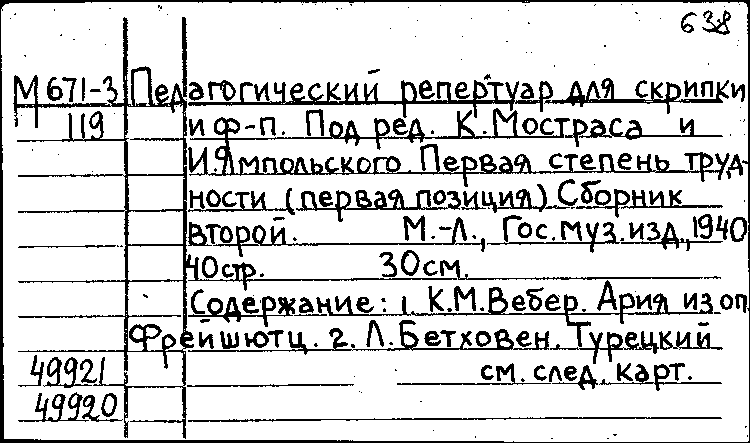 638
М 671-3 Педагогический репертуар для скрипки
119 и ф-п. Под ред. К.Мостраса и
И.Ямпольского. Первая степень труд-
ности (первая позиция) Сборник
второй. М.-Л., Гос.муз.изд.,1940
40стр. 30см.
Содержание: 1. К.М.Вебер. Ария из оп.
Фрейшютц. 2. Л.Бетховен. Турецкий
49921 см. след. карт.
49920